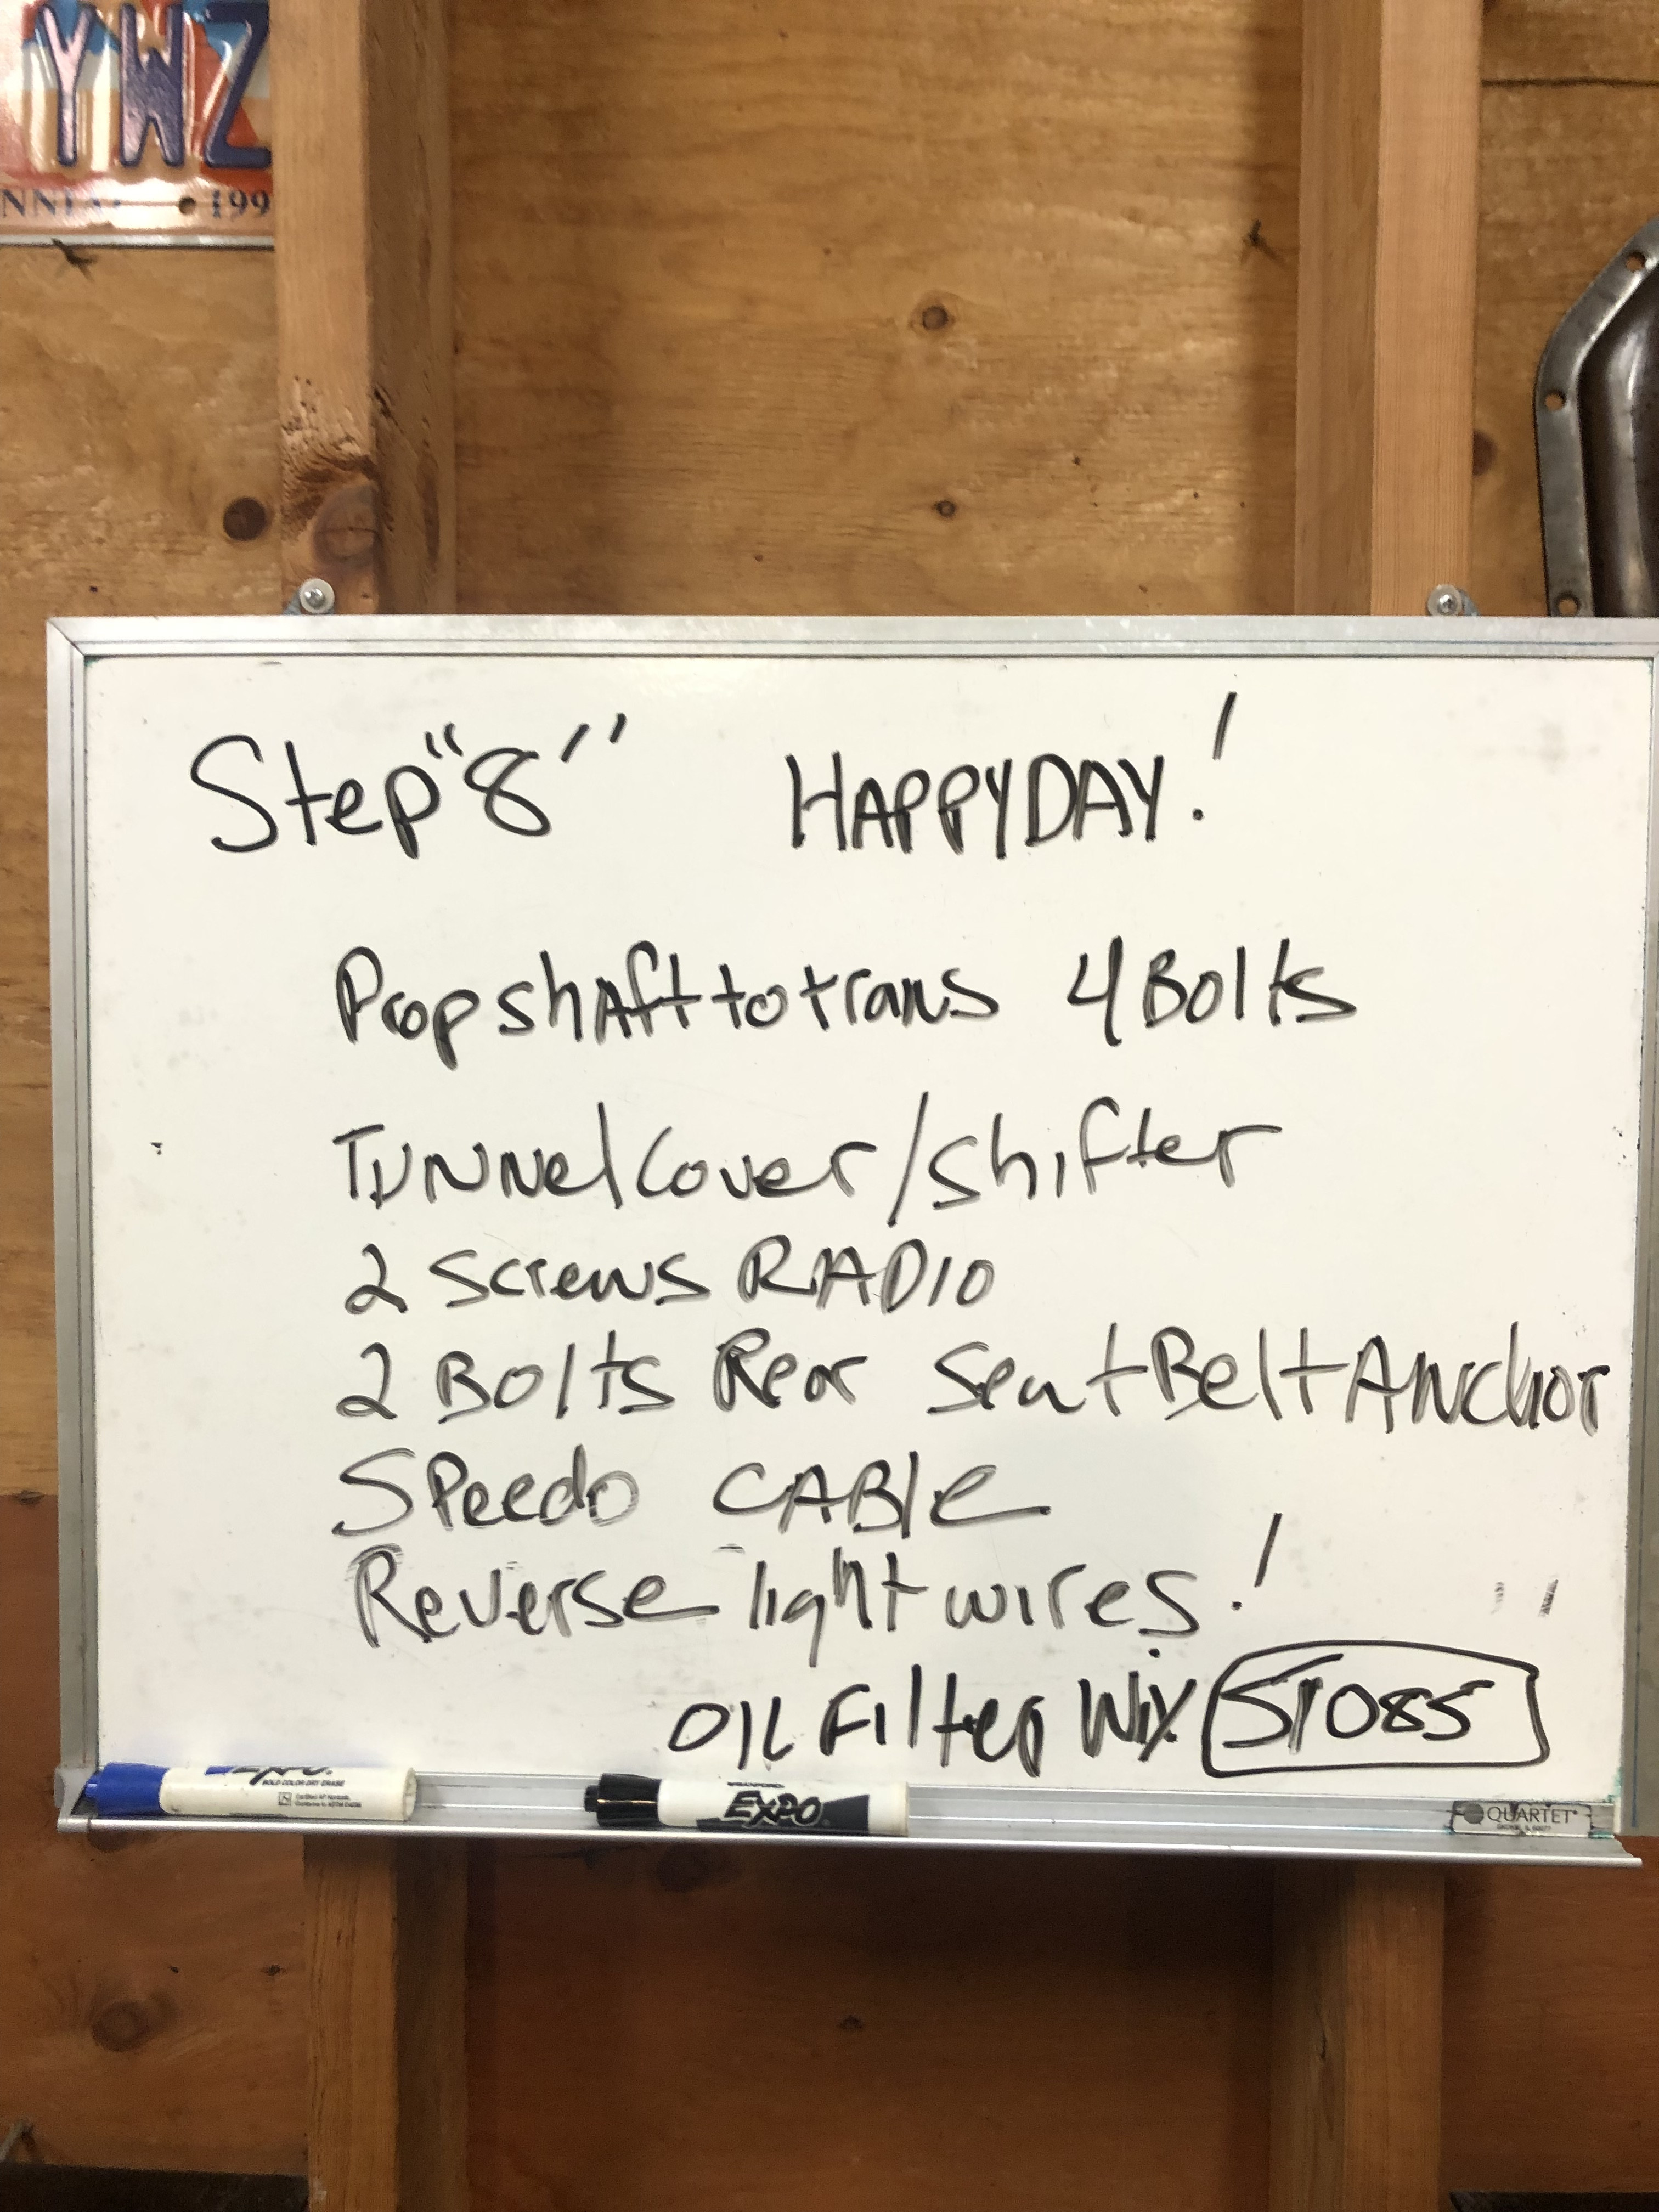 YWZ
199
Step "8" HAPPY DAY!
Prop shaft to trans 4 Bolts
Tunnel Cover/shifter
2 screws RADIO
2 Bolts Rear Seat Belt Anchor
Speedo CABle
Reverse light wires!
OIL Filter Wix 51085
BOLD COLOR DRY ERASE
EXPO
QUARTET